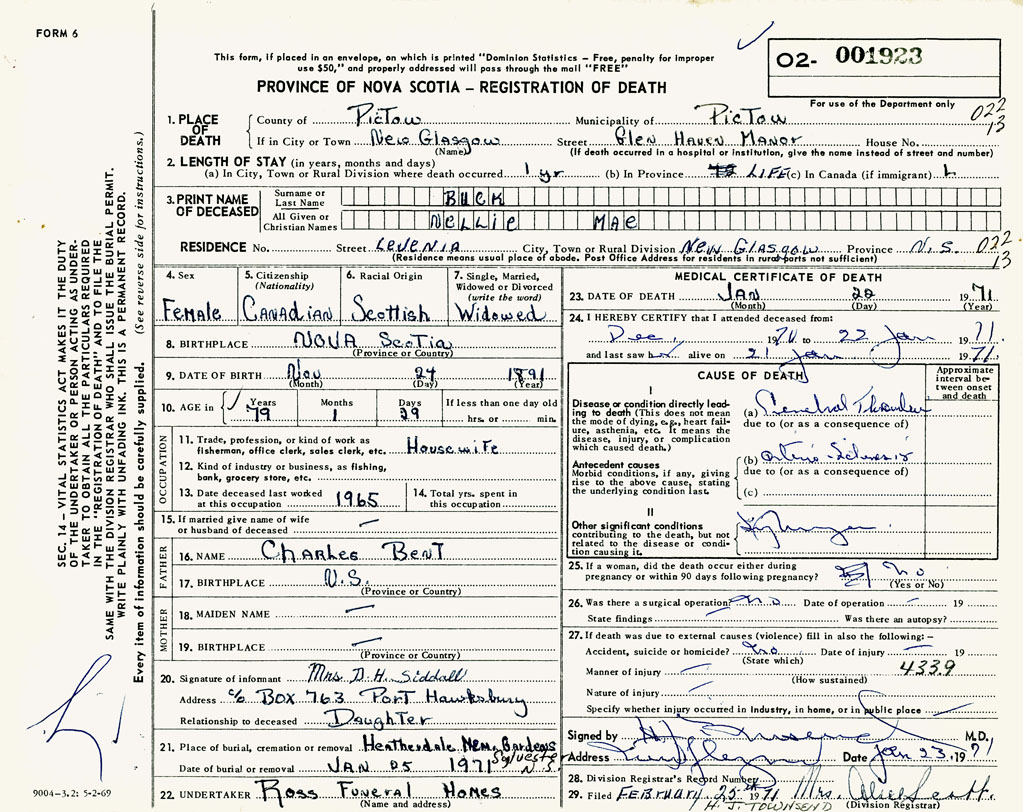 FORM 6
This form, if placed in an envelope, on which is printed "Dominion Statistics – Free, penalty for improper
use $50," and properly addressed will pass through the mail "FREE"
O2- 001923
PROVINCE OF NOVA SCOTIA – REGISTRATION OF DEATH
For use of the Department only
022
13
1. PLACE OF DEATH
County of Pictou Municipality of Pictou
If in City or Town New Glasgow Street Glen Haven Manor House No.
(Name) (If death occurred in a hospital or institution, give the name instead of street and number)
2. LENGTH OF STAY (in years, months and days)
(a) In City, Town or Rural Division where death occurred 1 yr (b) In Province LIFE (c) In Canada (if immigrant) L
3. PRINT NAME OF DECEASED
Surname or Last Name BUCK
All Given or Christian Names NELLIE MAE
RESIDENCE No. Street LEVENIA City, Town or Rural Division NEW GLASGOW Province N.S. 022
(Residence means usual place of abode. Post Office Address for residents in rural ports not sufficient) 13
4. Sex Female
5. Citizenship (Nationality) CANADIAN
6. Racial Origin Scottish
7. Single, Married, Widowed or Divorced (write the word) Widowed
8. BIRTHPLACE NOVA Scotia
(Province or Country)
9. DATE OF BIRTH Nov 24 1891
(Month) (Day) (Year)
10. AGE in Years 79 Months 1 Days 29 If less than one day old
hrs. or min.
OCCUPATION
11. Trade, profession, or kind of work as
fisherman, office clerk, sales clerk, etc. Housewife
12. Kind of industry or business, as fishing,
bank, grocery store, etc.
13. Date deceased last worked
at this occupation 1965
14. Total yrs. spent in
this occupation
15. If married give name of wife
or husband of deceased –
FATHER
16. NAME Charles Bent
17. BIRTHPLACE N.S.
(Province or Country)
MOTHER
18. MAIDEN NAME –
19. BIRTHPLACE –
(Province or Country)
20. Signature of informant Mrs. D. H. Siddall
Address c/o BOX 763 Port Hawksbury
Relationship to deceased Daughter
21. Place of burial, cremation or removal Heatherdale Mem. Gardens Sylvester N.S.
Date of burial or removal JAN 25 1971
22. UNDERTAKER Ross Funeral Homes
(Name and address)
MEDICAL CERTIFICATE OF DEATH
23. DATE OF DEATH JAN 22 1971
(Month) (Day) (Year)
24. I HEREBY CERTIFY that I attended deceased from:
Dec, 1970 to 22 Jan 1971
and last saw h alive on 21 Jan 1971
CAUSE OF DEATH
Approximate interval between onset and death
I
Disease or condition directly leading
to death (This does not mean
the mode of dying, e.g., heart failure,
asthenia, etc. It means the
disease, injury, or complication
which caused death.)
(a)
due to (or as a consequence of)
Antecedent causes
Morbid conditions, if any, giving
rise to the above cause, stating
the underlying condition last.
(b)
due to (or as a consequence of)
(c)
II
Other significant conditions
contributing to the death, but not
related to the disease or condition
causing it.
25. If a woman, did the death occur either during
pregnancy or within 90 days following pregnancy? No
(Yes or No)
26. Was there a surgical operation? No Date of operation – 19
State findings Was there an autopsy?
27. If death was due to external causes (violence) fill in also the following: –
Accident, suicide or homicide? No Date of injury – 19
(State which)
Manner of injury – 4339
(How sustained)
Nature of injury –
Specify whether injury occurred in industry, in home, or in public place –
Signed by M.D.
Address Date Jan 23 197
28. Division Registrar's Record Number
29. Filed FEBRUARY 25th 1971 Mrs. Alice Scott.
H. J. TOWNSEND (Division Registrar)
SEC. 14 – VITAL STATISTICS ACT MAKES IT THE DUTY
OF THE UNDERTAKER OR PERSON ACTING AS UNDERTAKER
TO OBTAIN ALL THE PARTICULARS REQUIRED
IN THE "REGISTRATION OF DEATH" AND TO FILE THE
SAME WITH THE DIVISION REGISTRAR WHO SHALL ISSUE THE BURIAL PERMIT.
WRITE PLAINLY WITH UNFADING INK. THIS IS A PERMANENT RECORD.
Every item of information should be carefully supplied. (See reverse side for instructions.)
9004–3.2: 5-2-69